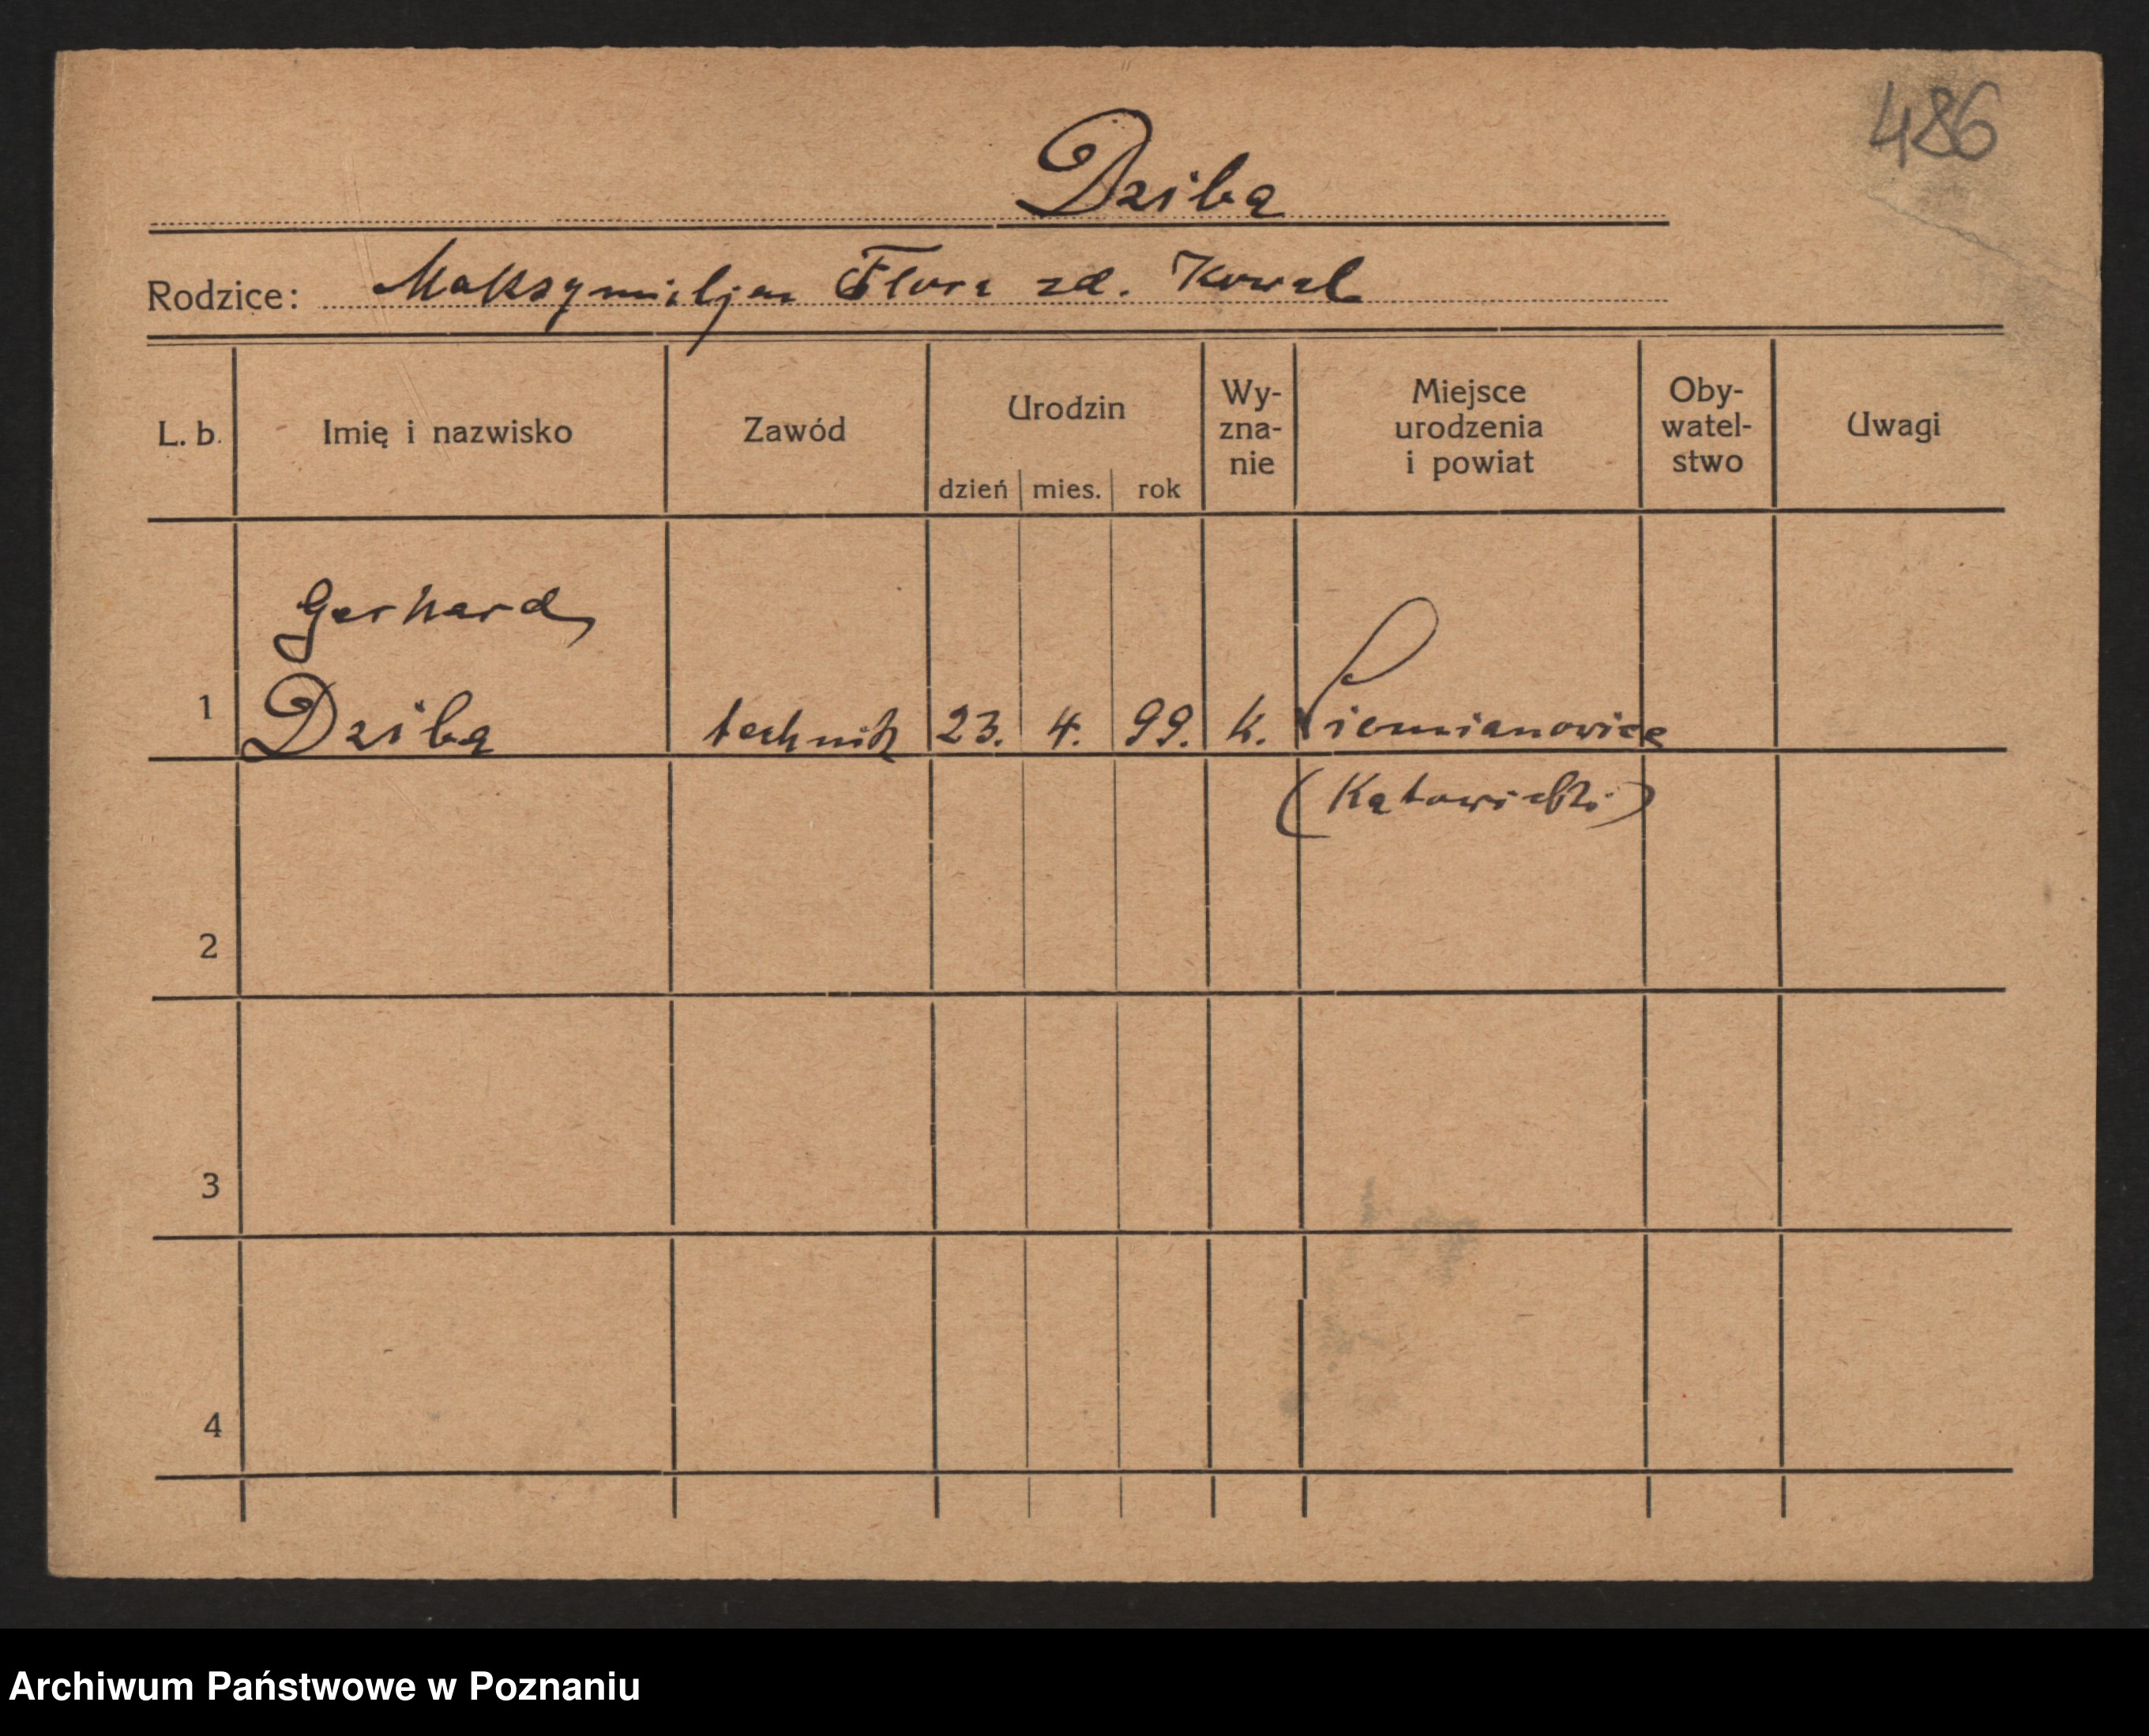 486
Dziba
Rodzice: Maksymiljan Flora zd. Kowal
L. b. Imię i nazwisko Zawód Urodzin dzień mies. rok Wy-zna-nie Miejsce urodzenia i powiat Oby-watel-stwo Uwagi
Gerhard
1 Dziba technik 23. 4. 99. k. Siemianowice
(Katowicki)
2
3
4
Archiwum Państwowe w Poznaniu